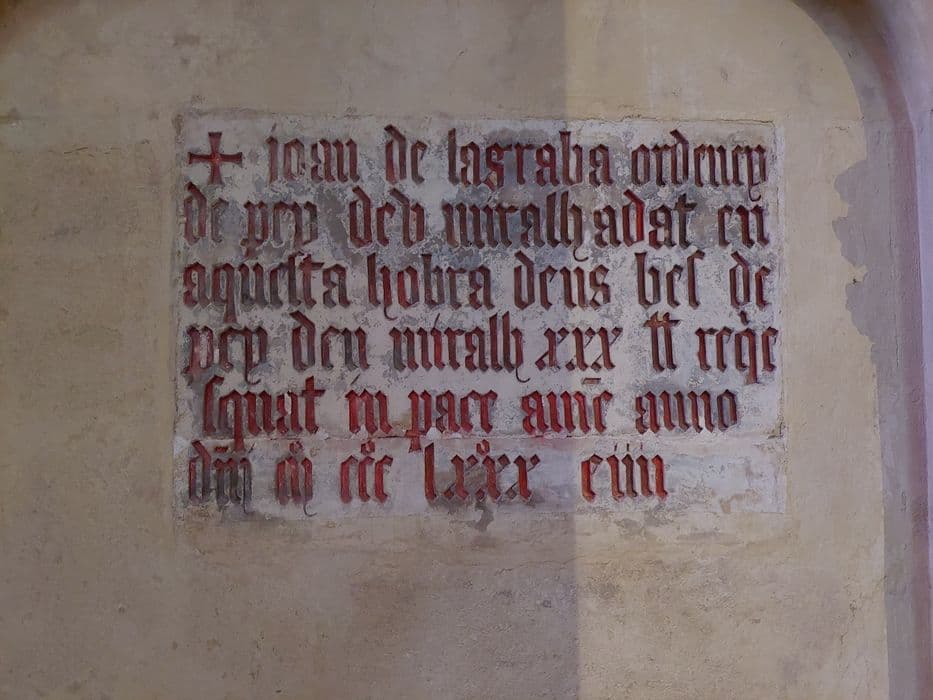 + joan de lasraba ordeney
de pey ded miralh adat en
aquesta hobra dens bes de
pey den miralh xxx tt reqe
squat in pace amē anno
dm̄ m̊ cc̊c lxx̊xx eiiii